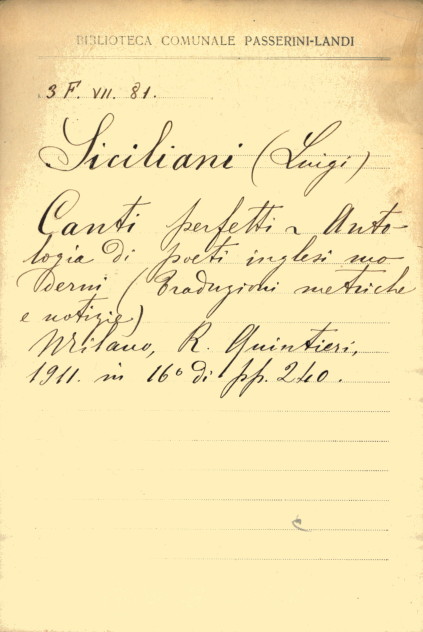 BIBLIOTECA COMUNALE PASSERINI-LANDI
3 F. VII. 81.
Siciliani (Luigi)
Canti perfetti ~ Anto-
logia di poeti inglesi mo-
derni (Traduzioni metriche
e notizie)
Milano, R. Quintieri,
1911. in 16° di pp. 240.